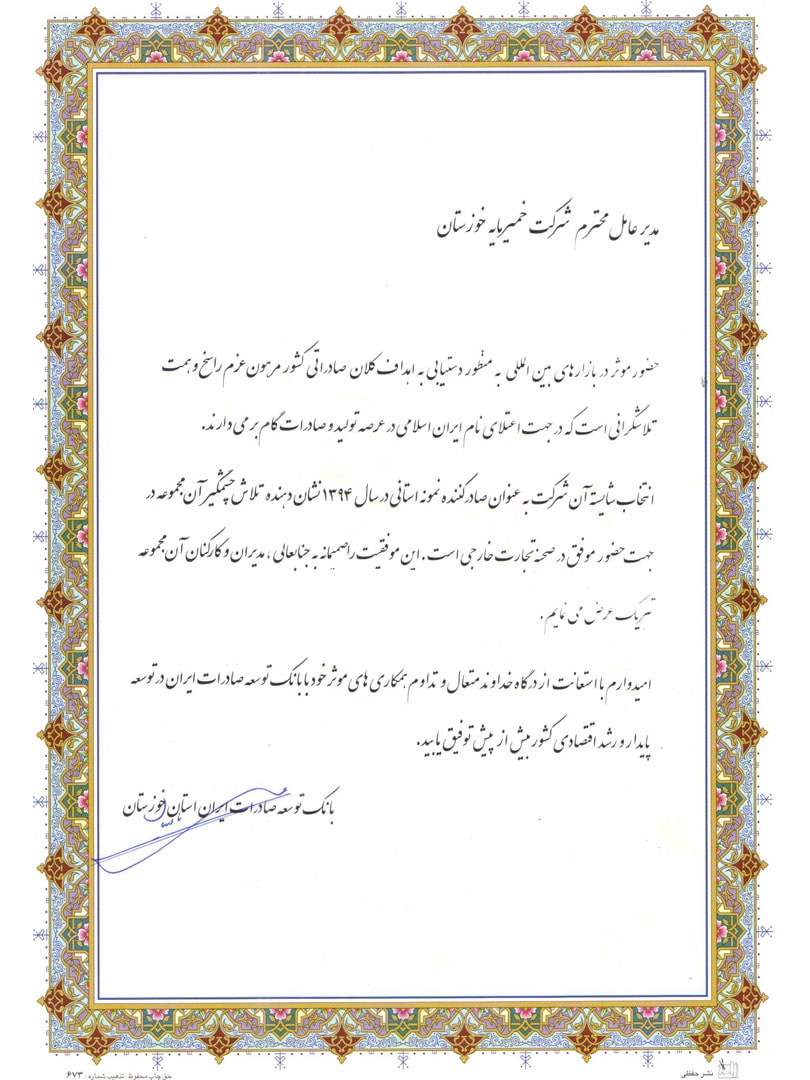 مدیر عامل محترم شرکت خمیرمایه خوزستان
حضور موثر در بازارهای بین المللی به منظور دستیابی به اهداف کلان صادراتی کشور مرهون عزم راسخ و همت
تلاشگرانی است که در جهت اعتلای نام ایران اسلامی در عرصه تولید و صادرات گام برمی دارند.
انتخاب شایسته آن شرکت به عنوان صادرکننده نمونه استانی در سال ۱۳۹۴ نشان دهنده تلاش چشمگیر آن مجموعه در
جهت حضور موفق در صحنه تجارت خارجی است. این موفقیت را صمیمانه به جنابعالی، مدیران و کارکنان آن مجموعه
تبریک عرض می نمایم.
امیدوارم با استعانت از درگاه خداوند متعال و تداوم همکاری های موثر خود با بانک توسعه صادرات ایران در توسعه
پایدار و رشد اقتصادی کشور بیش از پیش توفیق یابید.
بانک توسعه صادرات ایران استان خوزستان
نشر حفظی
حق چاپ محفوظ. تذهیب شماره: ۶۷۳